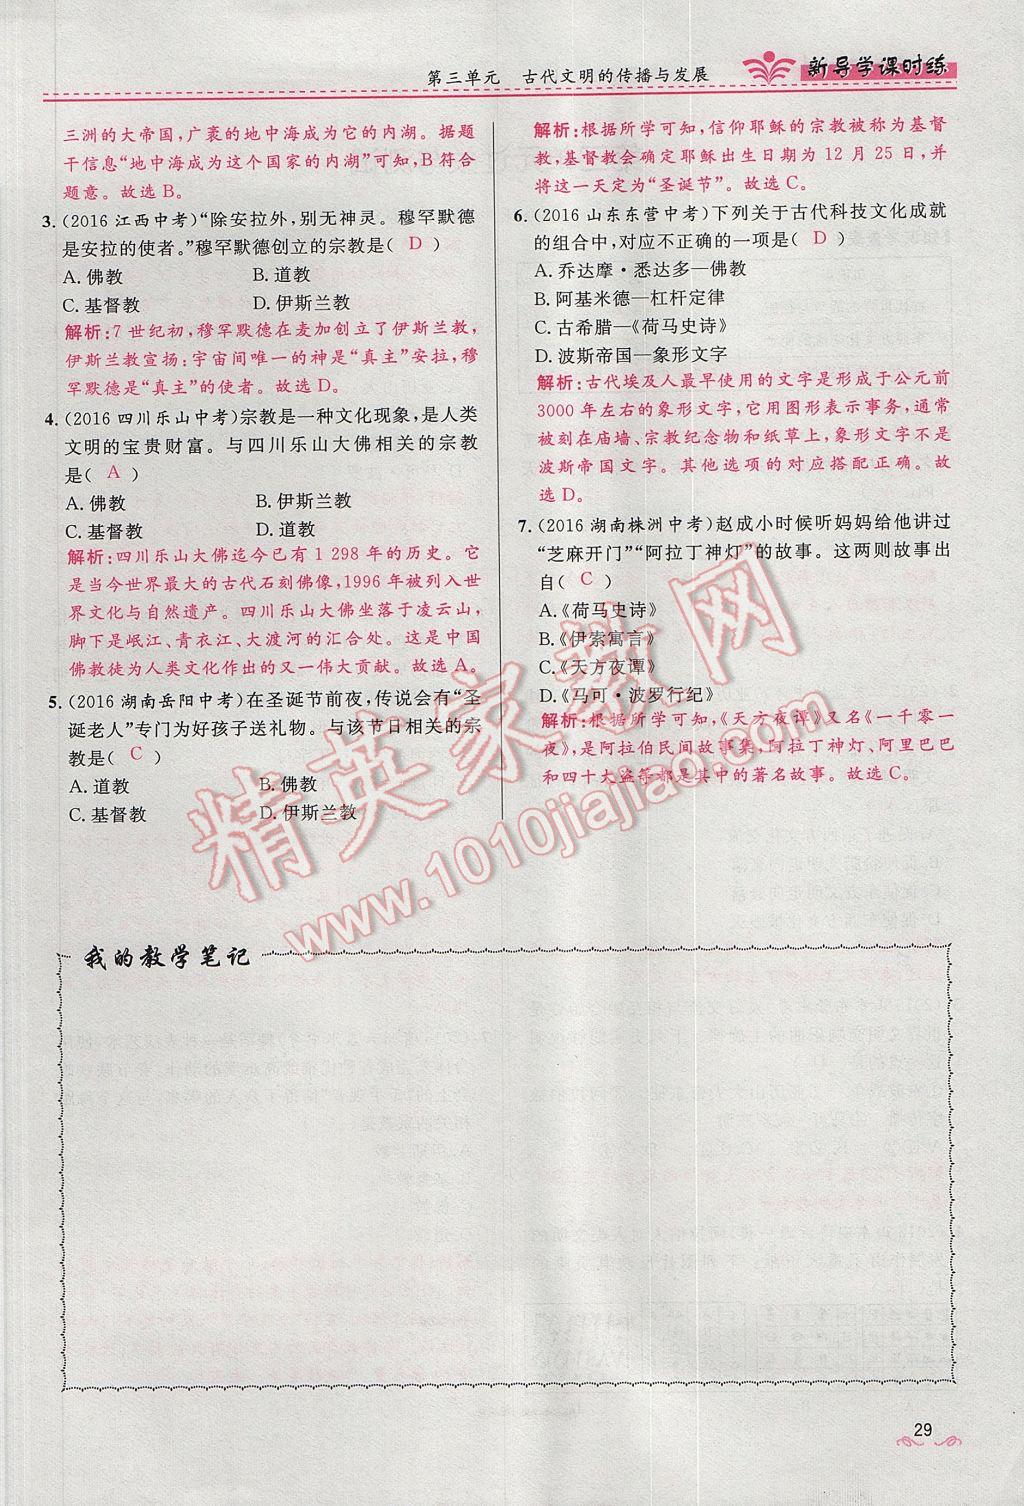 第三单元 古代文明的传播与发展
新导学课时练
三洲的大帝国,广袤的地中海成为它的内湖。据题
干信息“地中海成为这个国家的内湖”可知,B符合
题意。故选B。
3.(2016江西中考)“除安拉外,别无神灵。穆罕默德
是安拉的使者。”穆罕默德创立的宗教是( D )
A.佛教 B.道教
C.基督教 D.伊斯兰教
解析:7世纪初,穆罕默德在麦加创立了伊斯兰教,
伊斯兰教宣扬:宇宙间唯一的神是“真主”安拉,穆
罕默德是“真主”的使者。故选D。
4.(2016四川乐山中考)宗教是一种文化现象,是人类
文明的宝贵财富。与四川乐山大佛相关的宗教
是( A )
A.佛教 B.伊斯兰教
C.基督教 D.道教
解析:四川乐山大佛迄今已有1 298年的历史。它
是当今世界最大的古代石刻佛像,1996年被列入世
界文化与自然遗产。四川乐山大佛坐落于凌云山,
脚下是岷江、青衣江、大渡河的汇合处。这是中国
佛教徒为人类文化作出的又一伟大贡献。故选A。
5.(2016湖南岳阳中考)在圣诞节前夜,传说会有“圣
诞老人”专门为好孩子送礼物。与该节日相关的宗
教是( C )
A.道教 B.佛教
C.基督教 D.伊斯兰教
解析:根据所学可知,信仰耶稣的宗教被称为基督
教,基督教会确定耶稣出生日期为12月25日,并
将这一天定为“圣诞节”。故选C。
6.(2016山东东营中考)下列关于古代科技文化成就
的组合中,对应不正确的一项是( D )
A.乔达摩·悉达多—佛教
B.阿基米德—杠杆定律
C.古希腊—《荷马史诗》
D.波斯帝国—象形文字
解析:古代埃及人最早使用的文字是形成于公元前
3000年左右的象形文字,它用图形表示事务,通常
被刻在庙墙、宗教纪念物和纸草上,象形文字不是
波斯帝国文字。其他选项的对应搭配正确。故
选D。
7.(2016湖南株洲中考)赵成小时候听妈妈给他讲过
“芝麻开门”“阿拉丁神灯”的故事。这两则故事出
自( C )
A.《荷马史诗》
B.《伊索寓言》
C.《天方夜谭》
D.《马可·波罗行纪》
解析:根据所学可知,《天方夜谭》又名《一千零一
夜》,是阿拉伯民间故事集,阿拉丁神灯、阿里巴巴
和四十大盗等都是其中的著名故事。故选C。
精英家教网
www.1010jiajiao.com
我的教学笔记
29